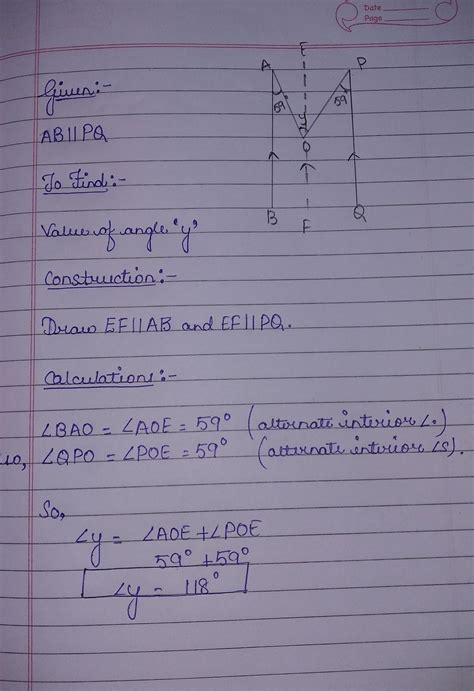 Date
Page
E
A
P
59°
59
y
O
B
F
Q
Given:-
AB||PQ
To Find:-
Value of angle 'y'
Construction:-
Draw EF||AB and EF||PQ.
Calculations:-
∠BAO = ∠AOE = 59° (alternate interior ∠.)
∠QPO = ∠POE = 59° (alternate interior ∠S).
So,
∠y = ∠AOE + ∠POE
59° + 59°
∠y = 118°